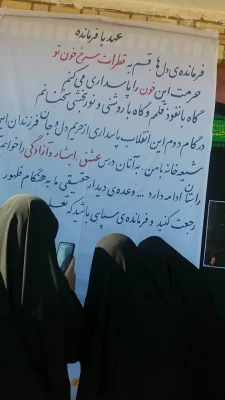 عهد با فرمانده
فرمانده‌ی دل‌ها، قسم به قطرات سرخ خون تو
حرمت این خون را پاسداری می‌کنم
گاه با نفوذ قلم و گاه با روشنی و نوربخشی
در گام دوم این انقلاب پاسداری از حریم دل و جان فرزندان این
شیعه‌خانه با من. به آنان درس عشق، ایثار و آزادگی را خواهم
راهتان ادامه دارد ... وعده‌ی دیدار حقیقی ما به هنگام ظهور
رجعت کنید و فرمانده‌ی سپاهی باشید که